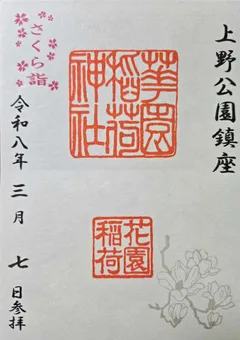 上野公園鎮座
華園
稲荷
神社
花園
稲荷
さくら詣
令和八年 三月 七日参拝